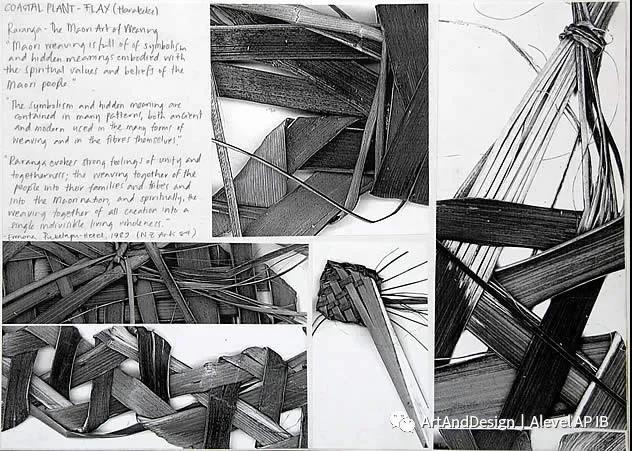 COASTAL PLANT - FLAX (Harakeke)
Raranga - The Maori Art of Weaving
"Maori weaving is full of of symbolism
and hidden meanings embodied with
the spiritual values and beliefs of the
Maori people."
"The symbolism and hidden meaning are
contained in many patterns, both ancient
and modern used in the many forms of
weaving and in the fibres themselves."
"Raranga evokes strong feelings of unity and
togetherness; the weaving together of the
people into their families and tribes and
into the Maori nation, and spiritually, the
weaving together of all creation into a
single indivisible living wholeness.
1982 (N.Z Arts
ArtAndDesign | Alevel AP IB